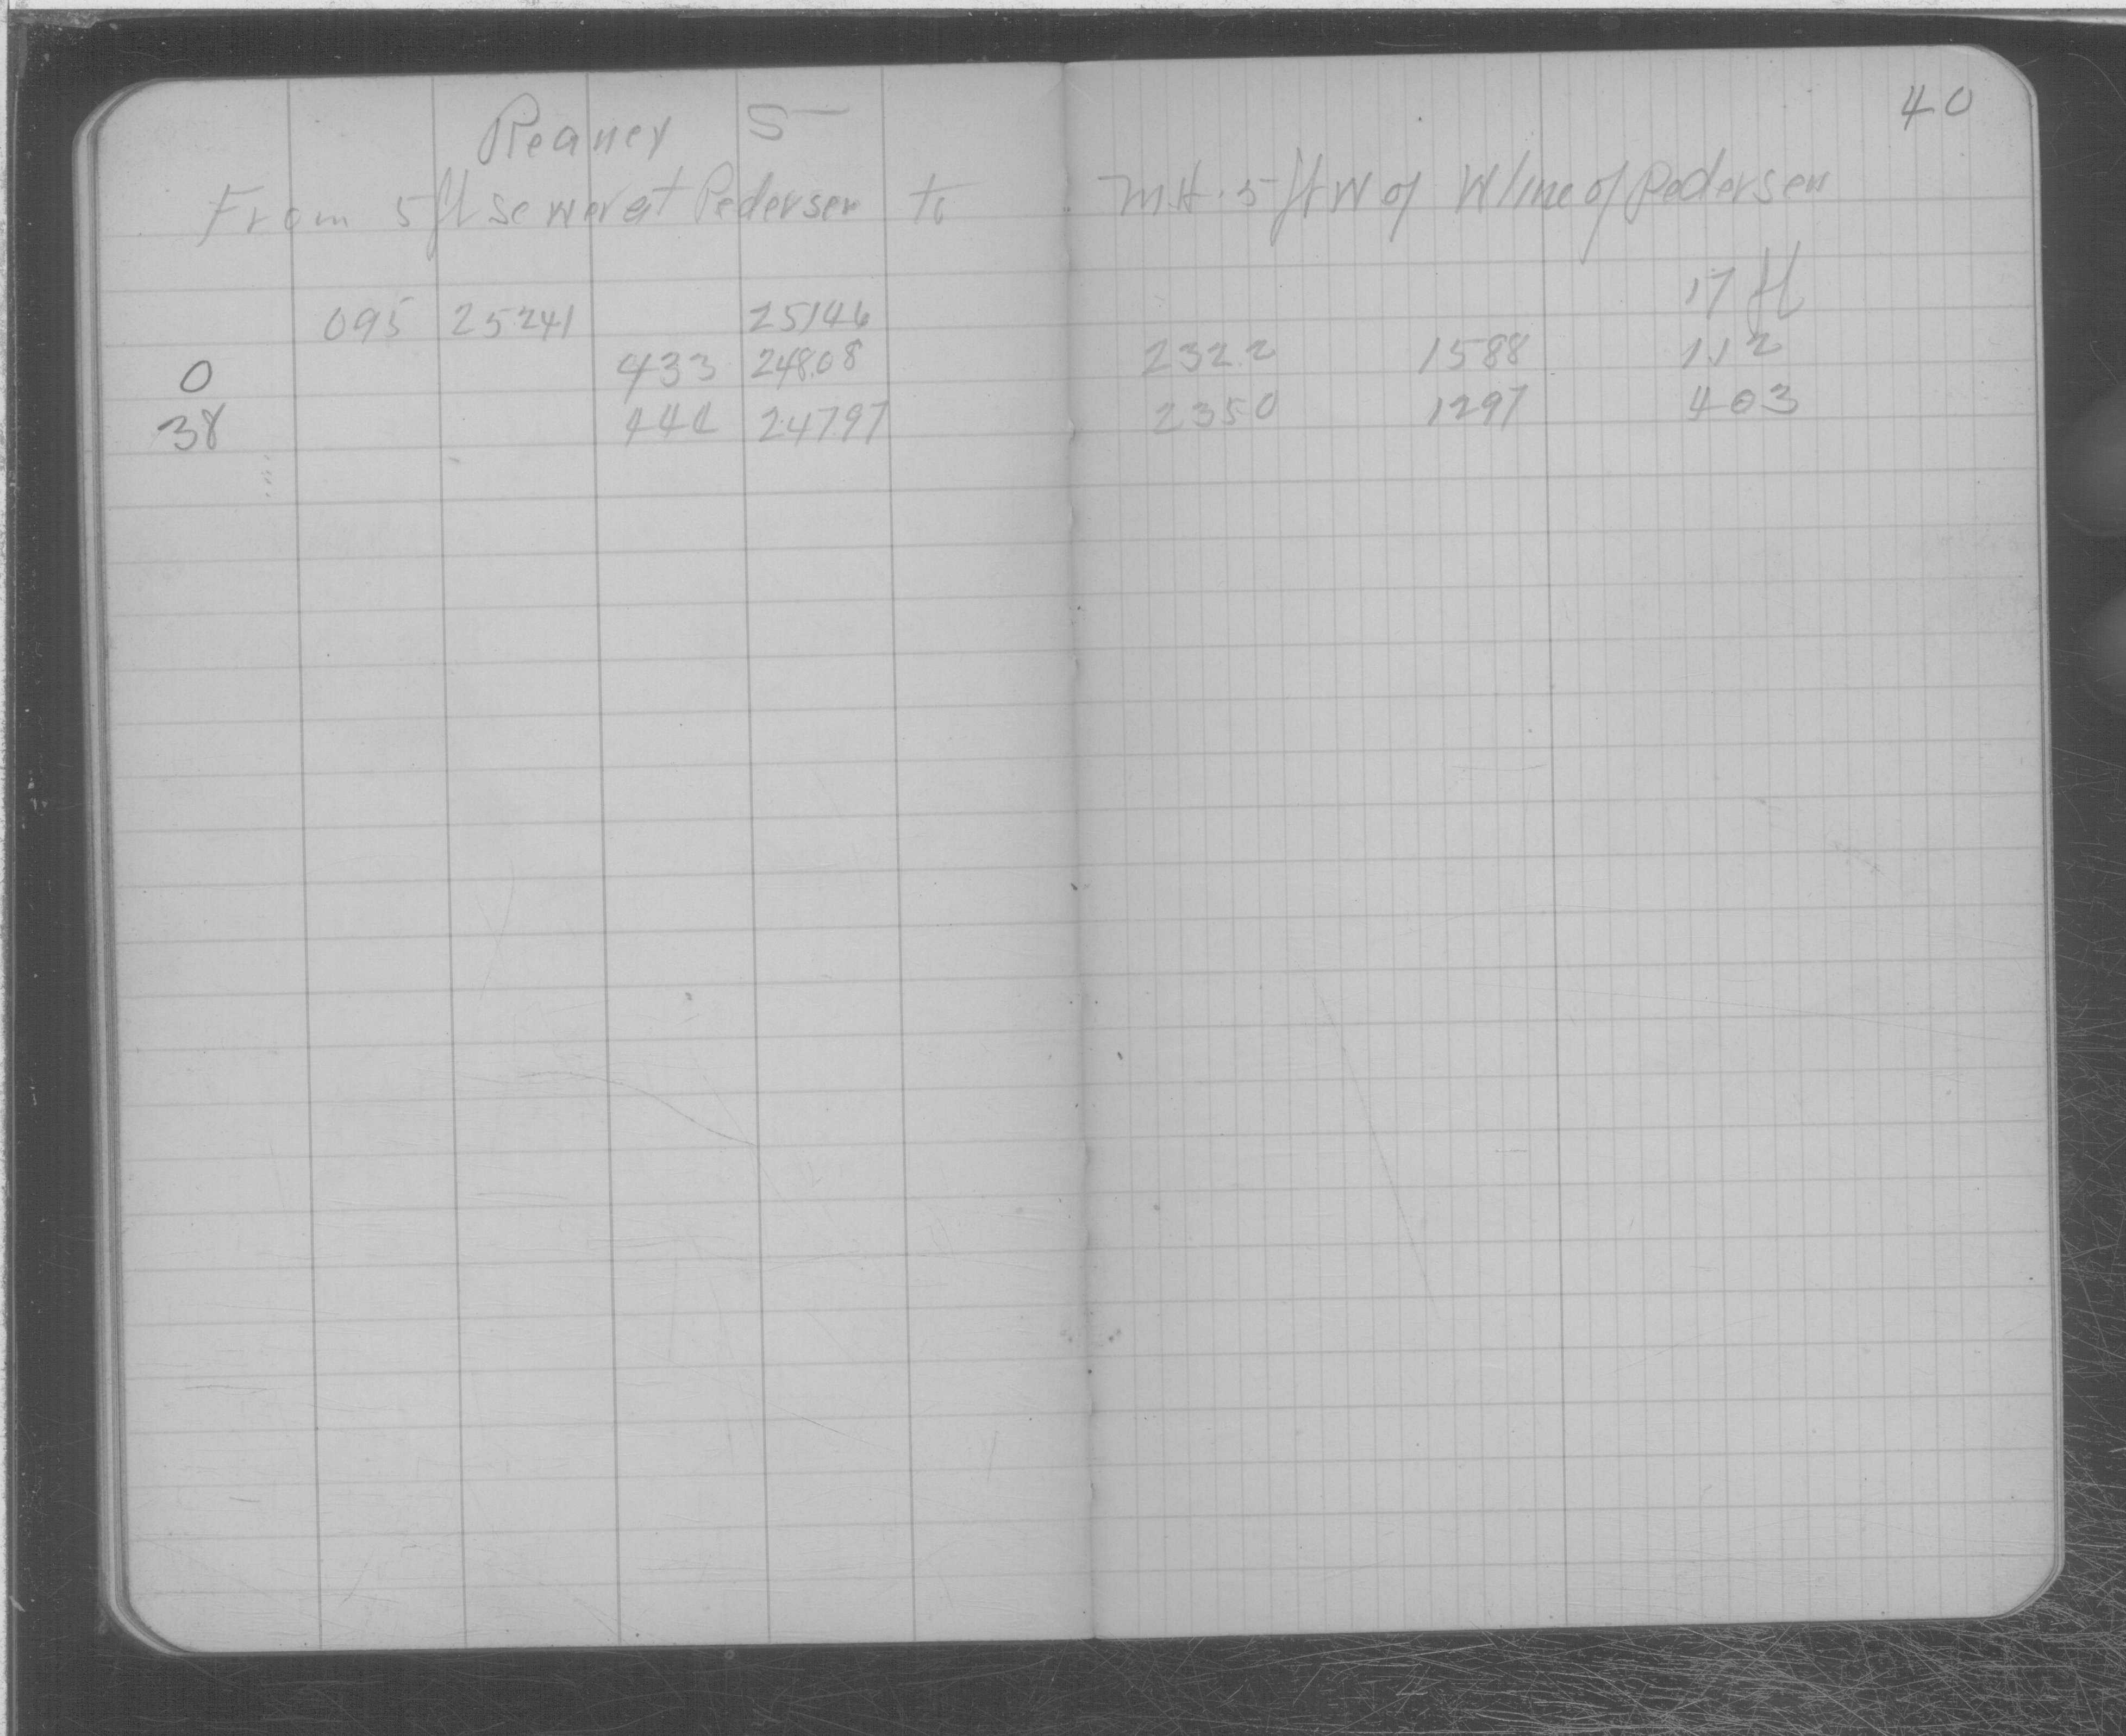 40
Reaney S
From 5 ft sewer at Pedersen to M.H. 5 ft W of W line of Pedersen
17 ft
095 25241 25146
0 433 24808 2322 1588 112
38 444 24797 2350 1297 403